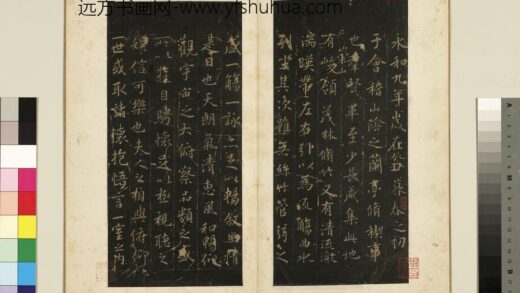 远方书画网-www.yfshuhua.com
永和九年歲在癸丑暮春之初
于會稽山陰之蘭亭脩禊事
也羣賢畢至少長咸集此地
有崇山峻領茂林脩竹又有清流激
湍暎帶左右引以為流觴曲水
列坐其次雖無絲竹管弦之
盛一觴一詠亦足以暢敘幽情
是日也天朗氣清惠風和暢仰
觀宇宙之大俯察品類之盛
所以遊目騁懷足以極視聽之
娛信可樂也夫人之相與俯仰
一世或取諸懷抱悟言一室之內